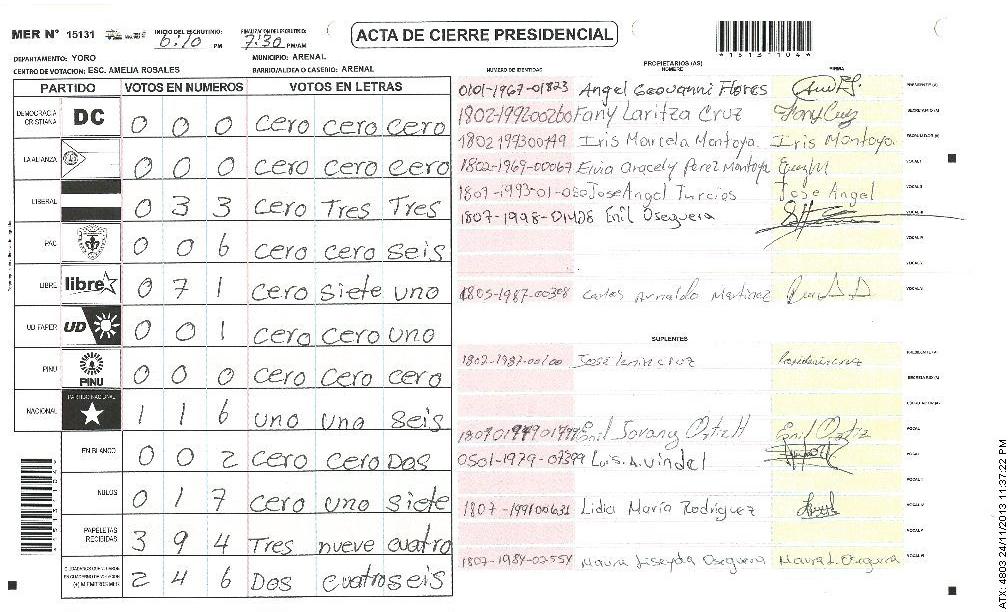 MER Nº 15131 INICIO DEL ESCRUTINIO: 6:10 PM FINALIZACION DEL ESCRUTINIO: 7:30 PM/AM
ACTA DE CIERRE PRESIDENCIAL
*15131104*
DEPARTAMENTO: YORO MUNICIPIO: ARENAL
CENTRO DE VOTACION: ESC. AMELIA ROSALES BARRIO/ALDEA O CASERIO: ARENAL
PARTIDO VOTOS EN NUMEROS VOTOS EN LETRAS
DEMOCRACIA CRISTIANA DC 0 0 0 cero cero cero
LA ALIANZA 0 0 0 cero cero cero
LIBERAL 0 3 3 cero Tres Tres
PAC 0 0 6 cero cero seis
LIBRE libre 0 7 1 cero siete uno
UD FAPER UD 0 0 1 cero cero uno
PINU PINU 0 0 0 cero cero cero
NACIONAL PARTIDO NACIONAL 1 1 6 uno uno seis
EN BLANCO 0 0 2 cero cero Dos
NULOS 0 1 7 cero uno siete
PAPELETAS RECIBIDAS 3 9 4 Tres nueve cuatro
2 4 6 Dos cuatro seis
PROPIETARIOS (AS)
NUMERO DE IDENTIDAD NOMBRE FIRMA
0101-1967-01823 Angel Geovanni Flores PRESIDENTE (A)
1802-199200260 Fany Laritza Cruz Fany Cruz SECRETARIO (A)
1802199300149 Iris Marcela Montoya Iris Montoya ESCRUTADOR (A)
1802-1969-00067 Elvia Aracely Perez Montoya VOCAL I
1807-1993-01-080 Jose Angel Turcios Jose Angel VOCAL II
1807-1998-01428 Enil Oseguera VOCAL III
VOCAL IV
VOCAL V
1805-1987-00398 Carlos Arnaldo Martinez VOCAL VI
SUPLENTES
1802-1987-00100 José cruz PRESIDENTE (A)
SECRETARIO (A)
ESCRUTADOR (A)
Enil Ortiz VOCAL I
0501-1979-07399 Luis. A. Vindel VOCAL II
VOCAL III
1807-199100631 Lidia María Rodríguez VOCAL IV
VOCAL V
1807-1984-02554 Maura Oseguera Maura L. Oseguera VOCAL VI
ATX: 4803 24/11/2013 11:37:22 PM